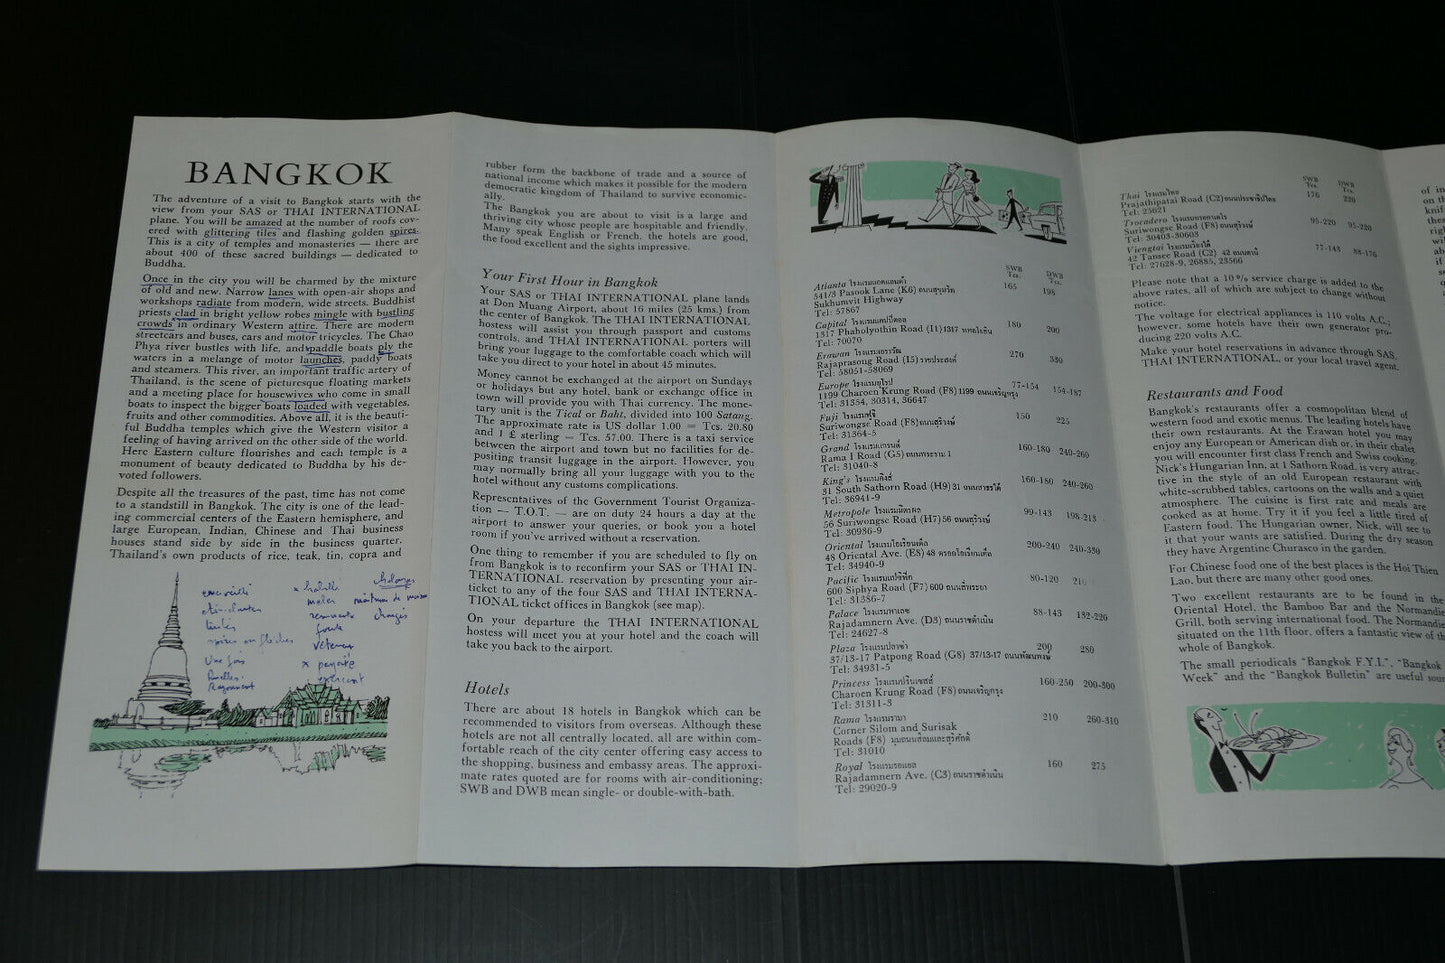 BANGKOK
The adventure of a visit to Bangkok starts with the
view from your SAS or THAI INTERNATIONAL
plane. You will be amazed at the number of roofs cov-
ered with glittering tiles and flashing golden spires.
This is a city of temples and monasteries — there are
about 400 of these sacred buildings — dedicated to
Buddha.
Once in the city you will be charmed by the mixture
of old and new. Narrow lanes with open-air shops and
workshops radiate from modern, wide streets. Buddhist
priests clad in bright yellow robes mingle with bustling
crowds in ordinary Western attire. There are modern
streetcars and buses, cars and motor tricycles. The Chao
Phya river bustles with life, and paddle boats ply the
waters in a melange of motor launches, paddy boats
and steamers. This river, an important traffic artery of
Thailand, is the scene of picturesque floating markets
and a meeting place for housewives who come in small
boats to inspect the bigger boats loaded with vegetables,
fruits and other commodities. Above all, it is the beauti-
ful Buddha temples which give the Western visitor a
feeling of having arrived on the other side of the world.
Here Eastern culture flourishes and each temple is a
monument of beauty dedicated to Buddha by his de-
voted followers.
Despite all the treasures of the past, time has not come
to a standstill in Bangkok. The city is one of the lead-
ing commercial centers of the Eastern hemisphere, and
large European, Indian, Chinese and Thai business
houses stand side by side in the business quarter.
Thailand's own products of rice, teak, tin, copra and
rubber form the backbone of trade and a source of
national income which makes it possible for the modern
democratic kingdom of Thailand to survive economic-
ally.
The Bangkok you are about to visit is a large and
thriving city whose people are hospitable and friendly.
Many speak English or French, the hotels are good,
the food excellent and the sights impressive.
Your First Hour in Bangkok
Your SAS or THAI INTERNATIONAL plane lands
at Don Muang Airport, about 16 miles (25 kms.) from
the center of Bangkok. The THAI INTERNATIONAL
hostess will assist you through passport and customs
controls, and THAI INTERNATIONAL porters will
bring your luggage to the comfortable coach which will
take you direct to your hotel in about 45 minutes.
Money cannot be exchanged at the airport on Sundays
or holidays but any hotel, bank or exchange office in
town will provide you with Thai currency. The mone-
tary unit is the Tical or Baht, divided into 100 Satang.
The approximate rate is US dollar 1.00 = Tcs. 20.80
and 1 £ sterling = Tcs. 57.00. There is a taxi service
between the airport and town but no facilities for de-
positing transit luggage in the airport. However, you
may normally bring all your luggage with you to the
hotel without any customs complications.
Representatives of the Government Tourist Organiza-
tion — T.O.T. — are on duty 24 hours a day at the
airport to answer your queries, or book you a hotel
room if you've arrived without a reservation.
One thing to remember if you are scheduled to fly on
from Bangkok is to reconfirm your SAS or THAI IN-
TERNATIONAL reservation by presenting your air-
ticket to any of the four SAS and THAI INTERNA-
TIONAL ticket offices in Bangkok (see map).
On your departure the THAI INTERNATIONAL
hostess will meet you at your hotel and the coach will
take you back to the airport.
Hotels
There are about 18 hotels in Bangkok which can be
recommended to visitors from overseas. Although these
hotels are not all centrally located, all are within com-
fortable reach of the city center offering easy access to
the shopping, business and embassy areas. The approxi-
mate rates quoted are for rooms with air-conditioning;
SWB and DWB mean single- or double-with-bath.
SWB DWB
Tcs. Tcs.
Atlanta โรงแรมแอตแลนต้า 165 198
541/3 Pasook Lane (K6) ถนนสุขุมวิท
Sukhumvit Highway
Tel: 57867
Capital โรงแรมแคปปิตอล 180 200
1317 Phaholyothin Road (I1) 1317 พหลโยธิน
Tel: 70070
Erawan โรงแรมเอราวัณ 270 330
Rajaprasong Road (I5) ราชประสงค์
Tel: 58051-58069
Europe โรงแรมยุโรป 77-154 154-187
1199 Charoen Krung Road (F8) 1199 ถนนเจริญกรุง
Tel: 31354, 30314, 36647
Fuji โรงแรมฟูจิ 150 225
Suriwongse Road (F8) ถนนสุริวงษ์
Tel: 31364-5
Grand โรงแรมแกรนด์ 160-180 240-260
Rama I Road (G5) ถนนพระราม 1
Tel: 31040-8
King's โรงแรมคิงส์ 160-180 240-260
31 South Sathorn Road (H9) 31 ถนนสาธรใต้
Tel: 36941-9
Metropole โรงแรมมีโทรโปล 99-143 198-213
56 Suriwongse Road (H7) 56 ถนนสุริวงษ์
Tel: 30936-9
Oriental โรงแรมโอเรียนเต็ล 200-240 240-330
48 Oriental Ave. (E8) 48 ตรอกโอเรียนเต็ล
Tel: 34940-9
Pacific โรงแรมแปซิฟิค 80-120
600 Siphya Road (F7) 600 ถนนสี่พระยา
Tel: 31386-7
Palace โรงแรมพาเลซ 88-143 132-220
Rajadamnern Ave. (D3) ถนนราชดำเนิน
Tel: 24627-8
Plaza โรงแรมปลาซ่า 200 280
37/13-17 Patpong Road (G8) 37/13-17 ถนนพัฒนพงษ์
Tel: 34931-5
Princess โรงแรมปรินเซสส์ 160-250 200-300
Charoen Krung Road (F8) ถนนเจริญกรุง
Tel: 31311-3
Rama โรงแรมรามา 210 260-310
Corner Silom and Surisak
Roads (F8) มุมถนนสีลมและสุรศักดิ์
Tel: 31010
Royal โรงแรมรอแยล 160 275
Rajadamnern Ave. (C3) ถนนราชดำเนิน
Tel: 29020-9
SWB DWB
Tcs. Tcs.
Thai โรงแรมไทย 176 220
Prajathipatai Road (C2) ถนนประชาธิปไตย
Tel: 23621
Trocadero โรงแรมทรอคาเดโร 95-220 95-220
Suriwongse Road (F8) ถนนสุริวงษ์
Tel: 30403-30603
Viengtai โรงแรมเวียงใต้ 77-143 88-176
42 Tansee Road (C2) 42 ถนนตานี
Tel: 27628-9, 26885, 23566
Please note that a 10% service charge is added to the
above rates, all of which are subject to change without
notice.
The voltage for electrical appliances is 110 volts A.C.;
however, some hotels have their own generator pro-
ducing 220 volts A.C.
Make your hotel reservations in advance through SAS,
THAI INTERNATIONAL, or your local travel agent.
Restaurants and Food
Bangkok's restaurants offer a cosmopolitan blend of
western food and exotic menus. The leading hotels have
their own restaurants. At the Erawan hotel you may
enjoy any European or American dish or, in their chalet
you will encounter first class French and Swiss cooking.
Nick's Hungarian Inn, at 1 Sathorn Road, is very attrac-
tive in the style of an old European restaurant with
white-scrubbed tables, cartoons on the walls and a quiet
atmosphere. The cuisine is first rate and meals are
cooked as at home. Try it if you feel a little tired of
Eastern food. The Hungarian owner, Nick, will see to
it that your wants are satisfied. During the dry season
they have Argentine Churasco in the garden.
For Chinese food one of the best places is the Hoi Thien
Lao, but there are many other good ones.
Two excellent restaurants are to be found in the
Oriental Hotel, the Bamboo Bar and the Normandie
Grill, both serving international food. The Normandie
situated on the 11th floor, offers a fantastic view of the
whole of Bangkok.
The small periodicals "Bangkok F.Y.I.", "Bangkok
Week" and the "Bangkok Bulletin" are useful